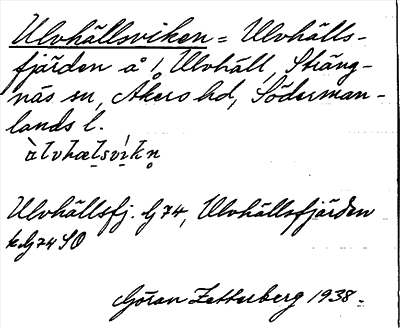 Ulvhällsviken = Ulvhälls-
fjärden å 1, Ulvhäll, Sträng-
näs sn, Åkers hd, Söderman-
lands l.
ùlvhælsvìkn̥
Ulvhällsfj. G 74, Ulvhällsfjärden
k G 74 SO
Göran Zetterberg 1938.